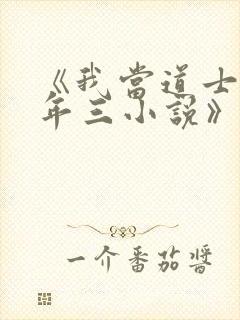 《我當道士
年三小說》
一介番茄醬